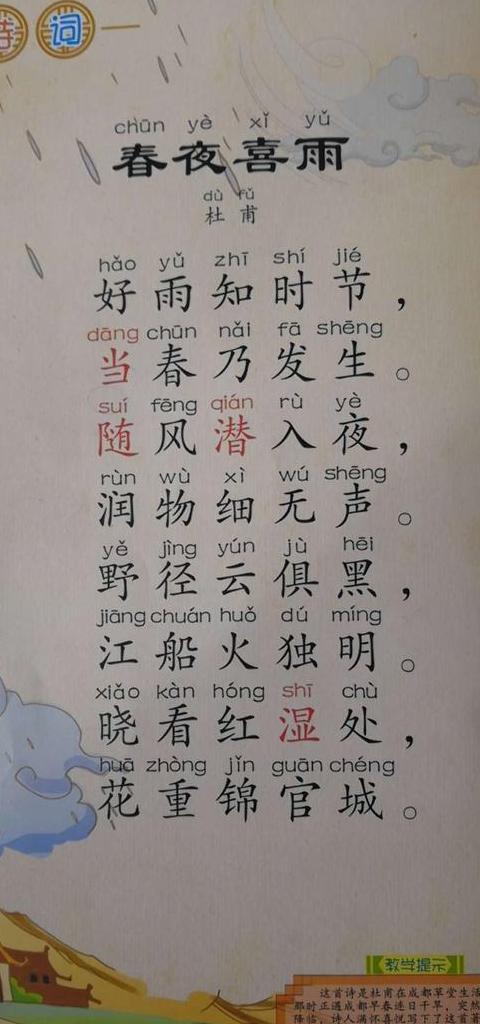 诗词
chūn yè xǐ yǔ
春夜喜雨
dù fǔ
杜甫
hǎo yǔ zhī shí jié
好雨知时节，
dāng chūn nǎi fā shēng
当春乃发生。
suí fēng qián rù yè
随风潜入夜，
rùn wù xì wú shēng
润物细无声。
yě jìng yún jù hēi
野径云俱黑，
jiāng chuán huǒ dú míng
江船火独明。
xiǎo kàn hóng shī chù
晓看红湿处，
huā zhòng jǐn guān chéng
花重锦官城。
教学提示
这首诗是杜甫在成都草堂生活
那时正遇成都早春连日干旱，突然
降临，诗人满怀喜悦写下了这首著